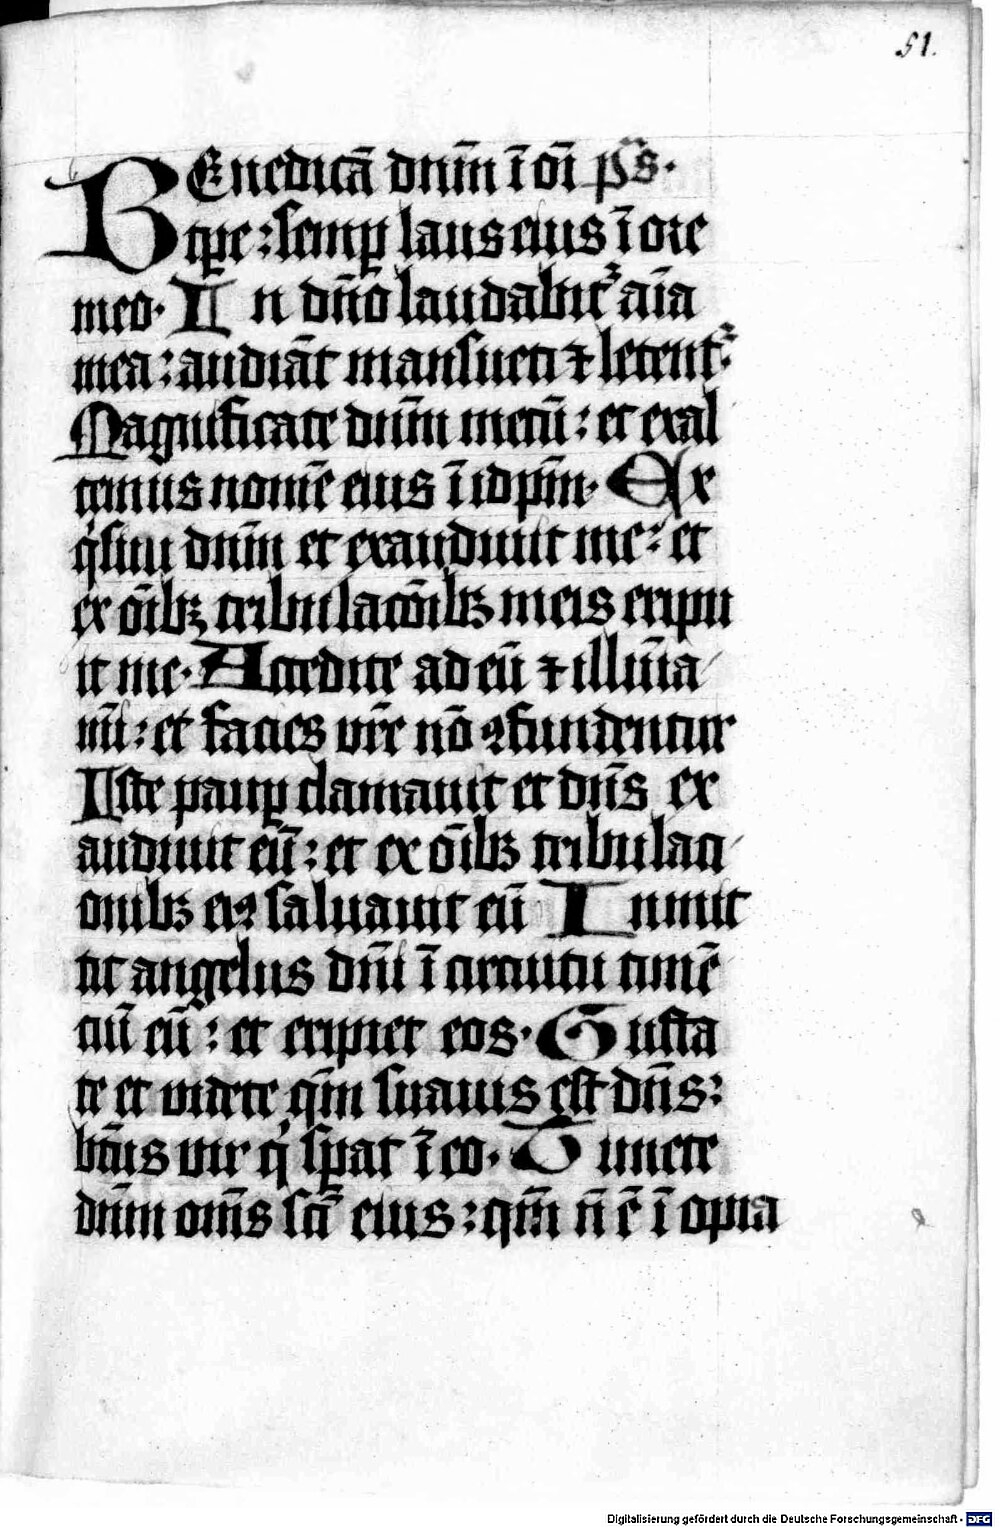 51.
BEnedicā dnm̄ ī oī ps̄.
tꝑe: semꝑ laus eius ī ore
meo. In dn̄o laudabitᷣ aīa
mea: audiāt mansueti ⁊ letentᷣ.
Magnificate dnm̄ mecū: et exal
temus nomē eius ī idpm̄. Ex
qͥsiui dnm̄ et exaudiuit me: et
ex oībꝫ tribulacōībꝫ meis eripu
it me. Accedite ad eū ⁊ illūīa
mī: et facies vrē nō ꝯfundentur
Iste pauꝑ clamauit et dn̄s ex
audiuit eū: et ex oībꝫ tribulaci
onibꝫ eiꝰ saluauit eū Inmit
tit angelus dn̄i ī circuitu timē
ciū eū: et eripiet eos. Gusta
te et videte qm̄ suauis est dn̄s:
bt̄us vir qͥ sꝑat ī eo. Timete
dnm̄ om̄s sc̄i eius: qm̄ n̄ ē ī opia
Digitalisierung gefördert durch die Deutsche Forschungsgemeinschaft - DFG